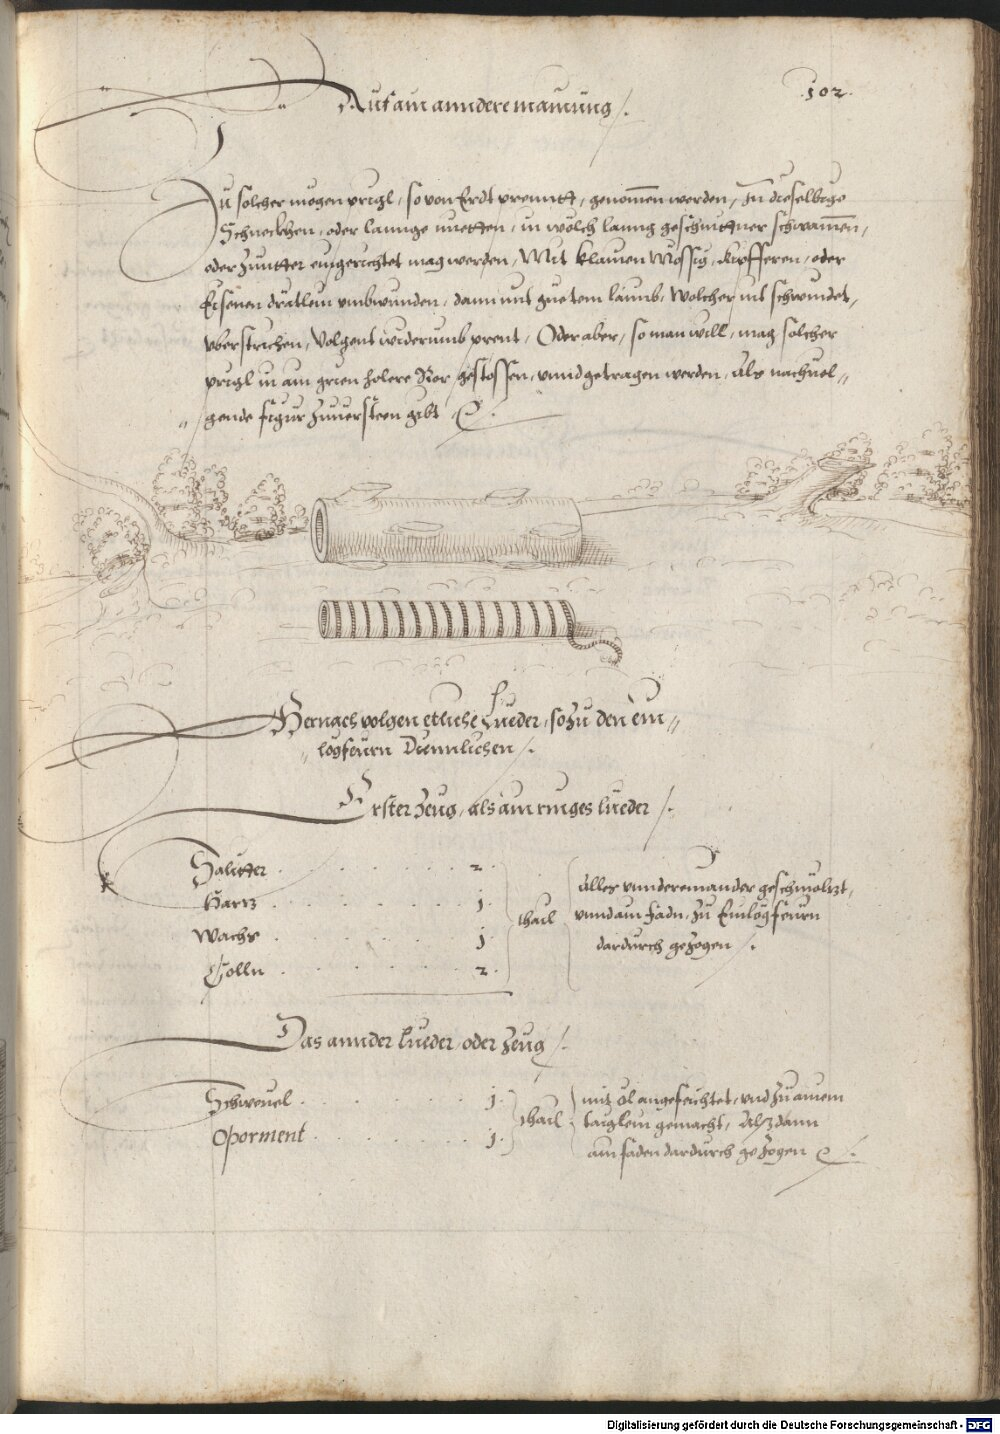 .102.
Auf ain anndere mainüng /.
Zu solcher mögen prigl, so von Erdt prenntt, genomen werden, In dieselbige
Schneckhen, oder lannge nuetten, in wölch lanng geschnittner schwamen,
oder Zuntter eingerichtet mag werden, Mit klainen Mössig, kupfferen, oder
Eisenen drätlein umbwunden, dann mit guetem laimb, Welcher nit schwindet,
überstrichen, Volgent widerumb prent, Oder aber, so man will, mag solcher
prigl in ain grien holere Rör gestossen, unnd getragen werden, Als nachvol„
„gende figur Zuversteen gibt
Hernach volgen etliche Lueder, so Zu den ein„
„legfeurn Diennlichen /.
Erster Zeug, als ain ringes lueder /.
Salitter . . . . . 2.
Hartz . . . . . 1.
Wachs . . . . . 1.
Colln . . . . . 2.
thail
Alles unndereinander geschmoltzt,
unnd ain fadn, Zu Einlegfeurn
dardurch geZogen /.
Das annder lueder, oder Zeug /.
Schwevel . . . . . 1.
Oporment . . . . . 1.
thail
mit öl angefeichtet, und Zu ainem
taiglein gemacht, Alßdann
ain faden dardurch geZogen
Digitalisierung gefördert durch die Deutsche Forschungsgemeinschaft - DFG